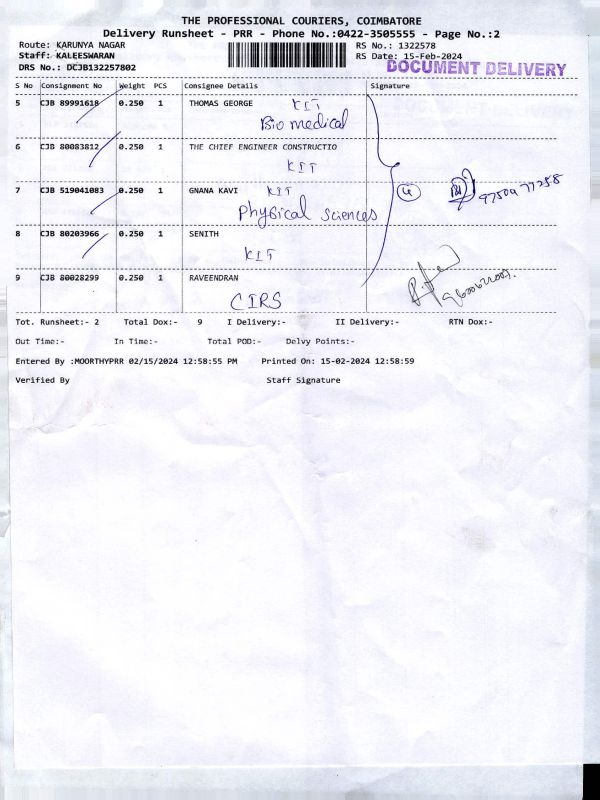 THE PROFESSIONAL COURIERS, COIMBATORE
Delivery Runsheet - PRR - Phone No.:0422-3505555 - Page No.:2
Route: KARUNYA NAGAR RS No.: 1322578
Staff: KALEESWARAN RS Date: 15-Feb-2024
DRS No.: DCJB132257802 DOCUMENT DELIVERY
S No Consignment No Weight PCS Consignee Details Signature
5 CJB 89991618 0.250 1 THOMAS GEORGE KIT
Bio medical
6 CJB 80083812 0.250 1 THE CHIEF ENGINEER CONSTRUCTIO
KIT
7 CJB 519041083 0.250 1 GNANA KAVI KIT
Physical Sciences
8 CJB 80203966 0.250 1 SENITH
KIT
9 CJB 80028299 0.250 1 RAVEENDRAN
CIRS
Tot. Runsheet:- 2 Total Dox:- 9 I Delivery:- II Delivery:- RTN Dox:-
Out Time:- In Time:- Total POD:- Delvy Points:-
Entered By :MOORTHYPRR 02/15/2024 12:58:55 PM Printed On: 15-02-2024 12:58:59
Verified By Staff Signature